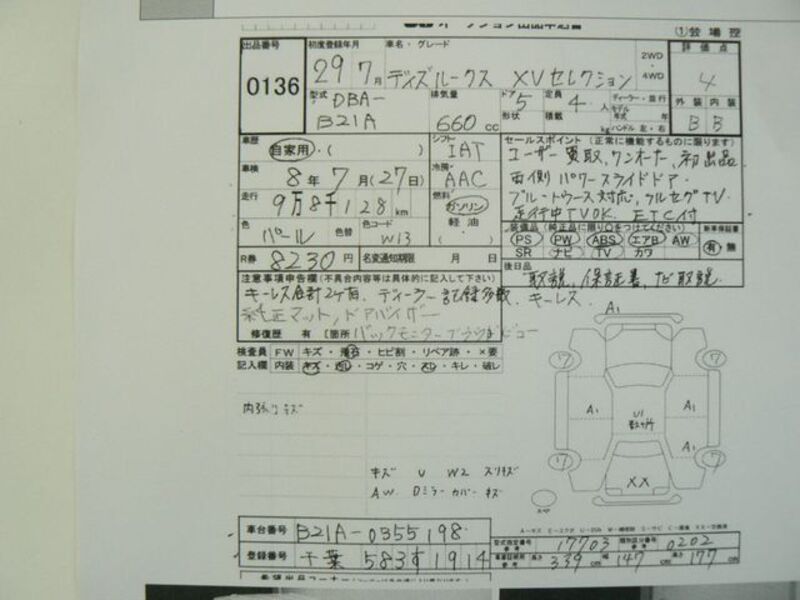 ①会場控
出品番号 0136
初度登録年月 29 7月
車名・グレード デイズルークス XVセレクション
2WD・4WD
評価点 4
型式 DBA-B21A
排気量 660cc
ドア 5
定員 4人
形状
積載 kg
ハンドル 左・右
外装 内装
B B
車歴 自家用・( )
シフト IAT
セールスポイント (正常に機能するものに限ります)
ユーザー買取、ワンオーナー、初出品
両側パワースライドドア・
ブルートゥース対応、フルセグTV
走行中TVOK. ETC付
車検 8年7月(27日)
冷房 AAC
走行 9万8千128km
燃料 ガソリン
軽油
( )
色 パール 色替
色コード W13
装備品 (純正品に限り○をつけてください)
PS PW ABS エアB AW
SR ナビ TV カワ
新車保証書
有・無
R券 8230円
名変通知期限 月 日
後日品
取説、保証書、ナビ取説
キーレス
注意事項申告欄 (不具合内容等は具体的に記入して下さい)
キーレス合計2ケ有、ディーラー記録多数、
純正マット、ドアバイザー
修復歴 有 〔箇所 バックモニター
検査員 FW キズ・飛石・ヒビ割・リペア跡・×要
記入欄 内装 キズ・汚れ・コゲ・穴・スレ・キレ・破レ
内張りキズ
A1
ワ ワ
A1 U1 A1
A1
ワ ワ
XX
キズ U W2 スリキズ
AW. Dミラーカバーキズ
車台番号 B21A-0355198
登録番号 千葉 583す1914
型式指定番号 17703
類別区分番号 0202
長さ 339cm 幅 147cm 高さ 177cm